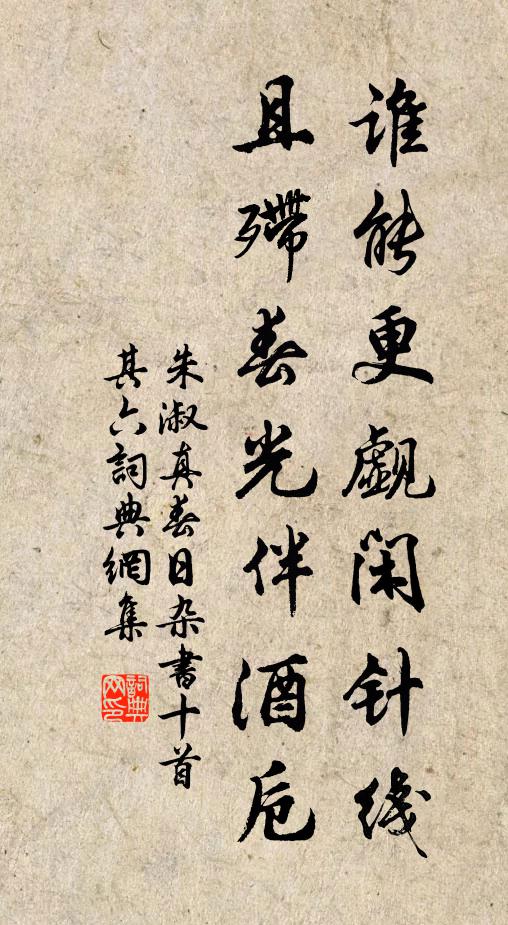 谁能更觑闲针线
且殢春光伴酒卮
朱淑真春日杂書十首
其六詞典網集
詞典网印